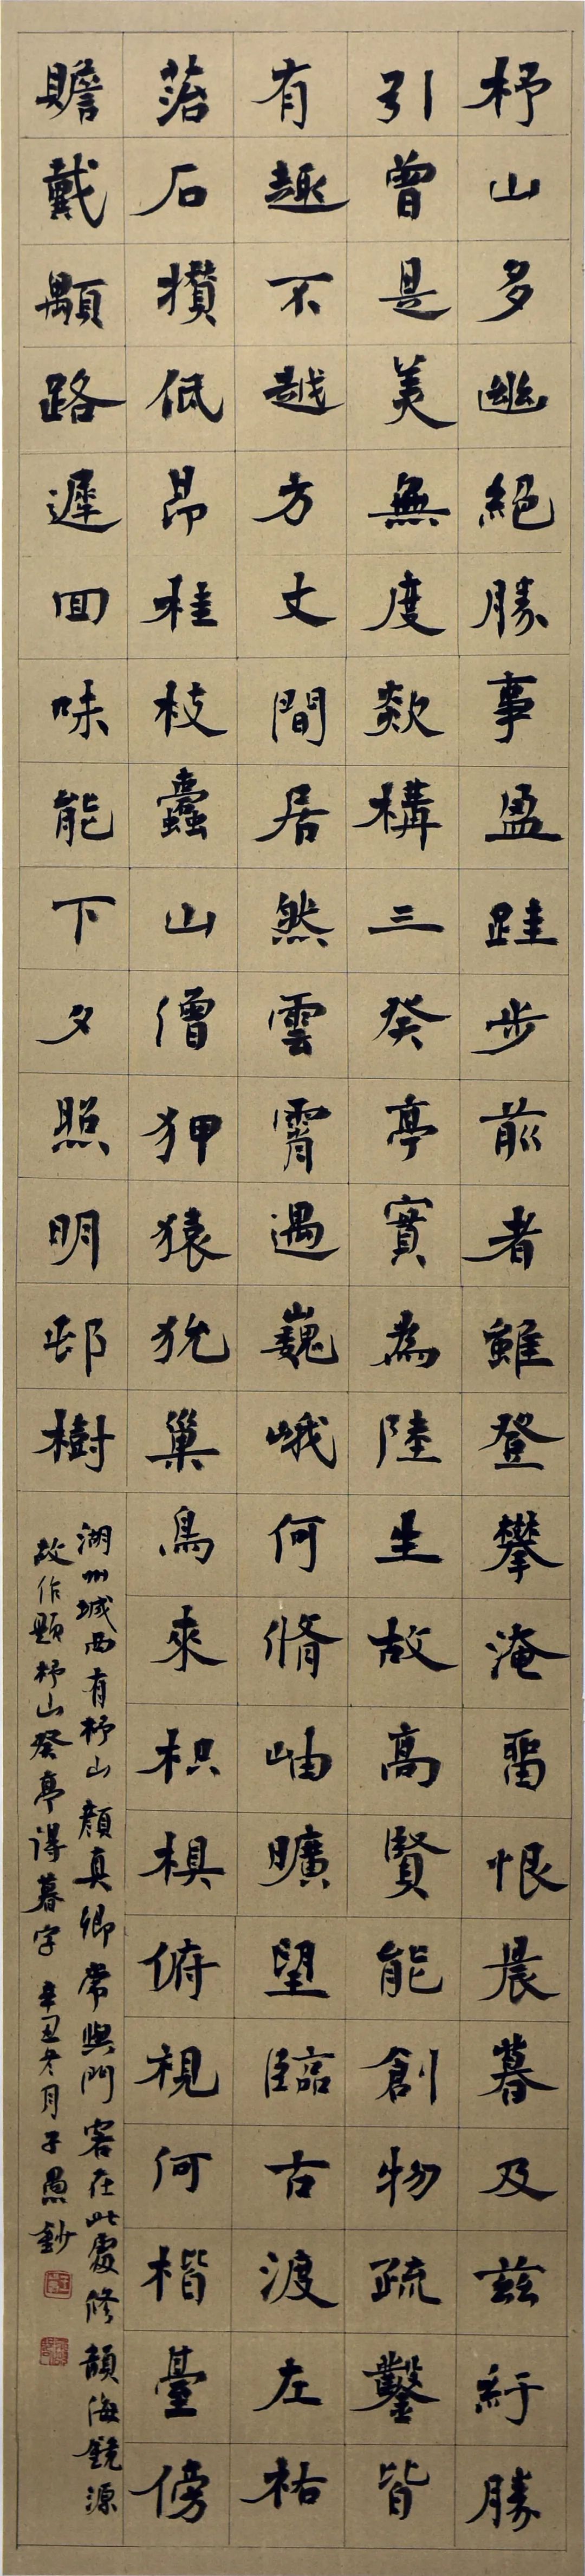 杼山多幽絕勝事盈跬步前者雖登攀淹留恨晨暮及茲紆勝
引曾是美無度欻構三癸亭實為陸生故高賢能創物疏鑿皆
有趣不越方丈間居然雲霄遇巍峨何脩岫曠望臨古渡左右
落石攢低昂桂枝蠹山僧狎猿狖巢鳥來枳椇俯視何楷臺傍
瞻戴顒路遲回味能下夕照明邨樹
湖州城西有杼山顏真卿常與門客在此處修韻海鏡源
故作題杼山癸亭得暮字 辛丑冬月子愚鈔